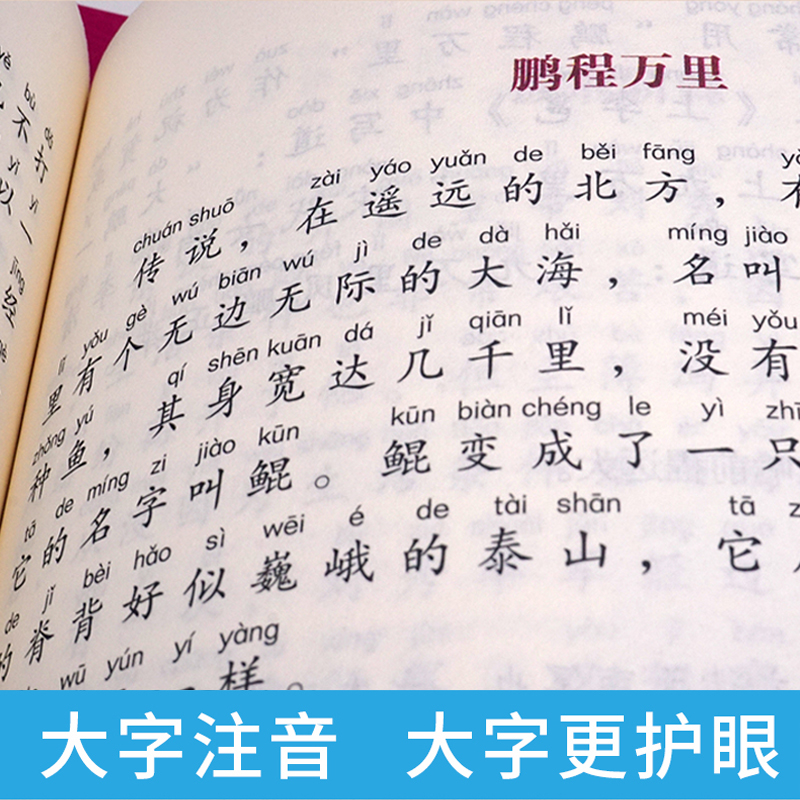 不打
以一
经
鹏程万里
chuán shuō zài yáo yuǎn de běi fāng
传说，在遥远的北方，有
lǐ yǒu gè wú biān wú jì de dà hǎi míng jiào
里有个无边无际的大海，名叫
zhǒng yú qí shēn kuān dá jǐ qiān lǐ méi yǒu
种鱼，其身宽达几千里，没有
tā de míng zi jiào kūn kūn biàn chéng le yì zhī
它的名字叫鲲。鲲变成了一只
de jǐ bèi hǎo sì wēi é de tài shān tā
的脊背好似巍峨的泰山，它
wū yún yí yàng
一样。
大字注音 大字更护眼